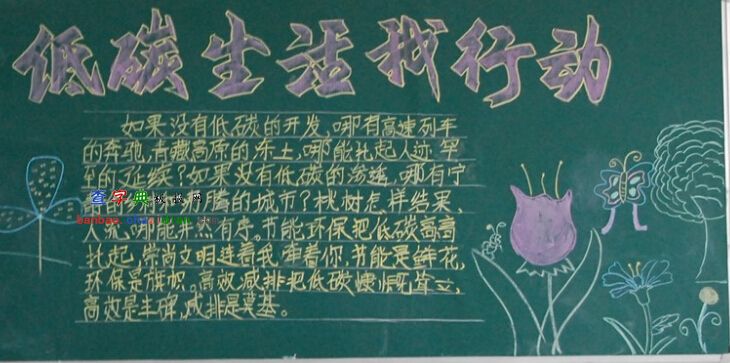 低碳生活我行动
如果没有低碳的开发,哪有高速列车
的奔驰,青藏高原的冻土,哪能扎起人迹罕
至的
如果没有低碳的
哪有宁
查字典板报网
的城市?桃树怎样结果,
人流,哪能井然有序。节能环保把低碳高高
扎起,崇尚文明连着我,牵着你,节能是鲜花,
环保是旗帜。高效,减排把低碳慷慨耸立,
高效是丰碑,减排是奠基。